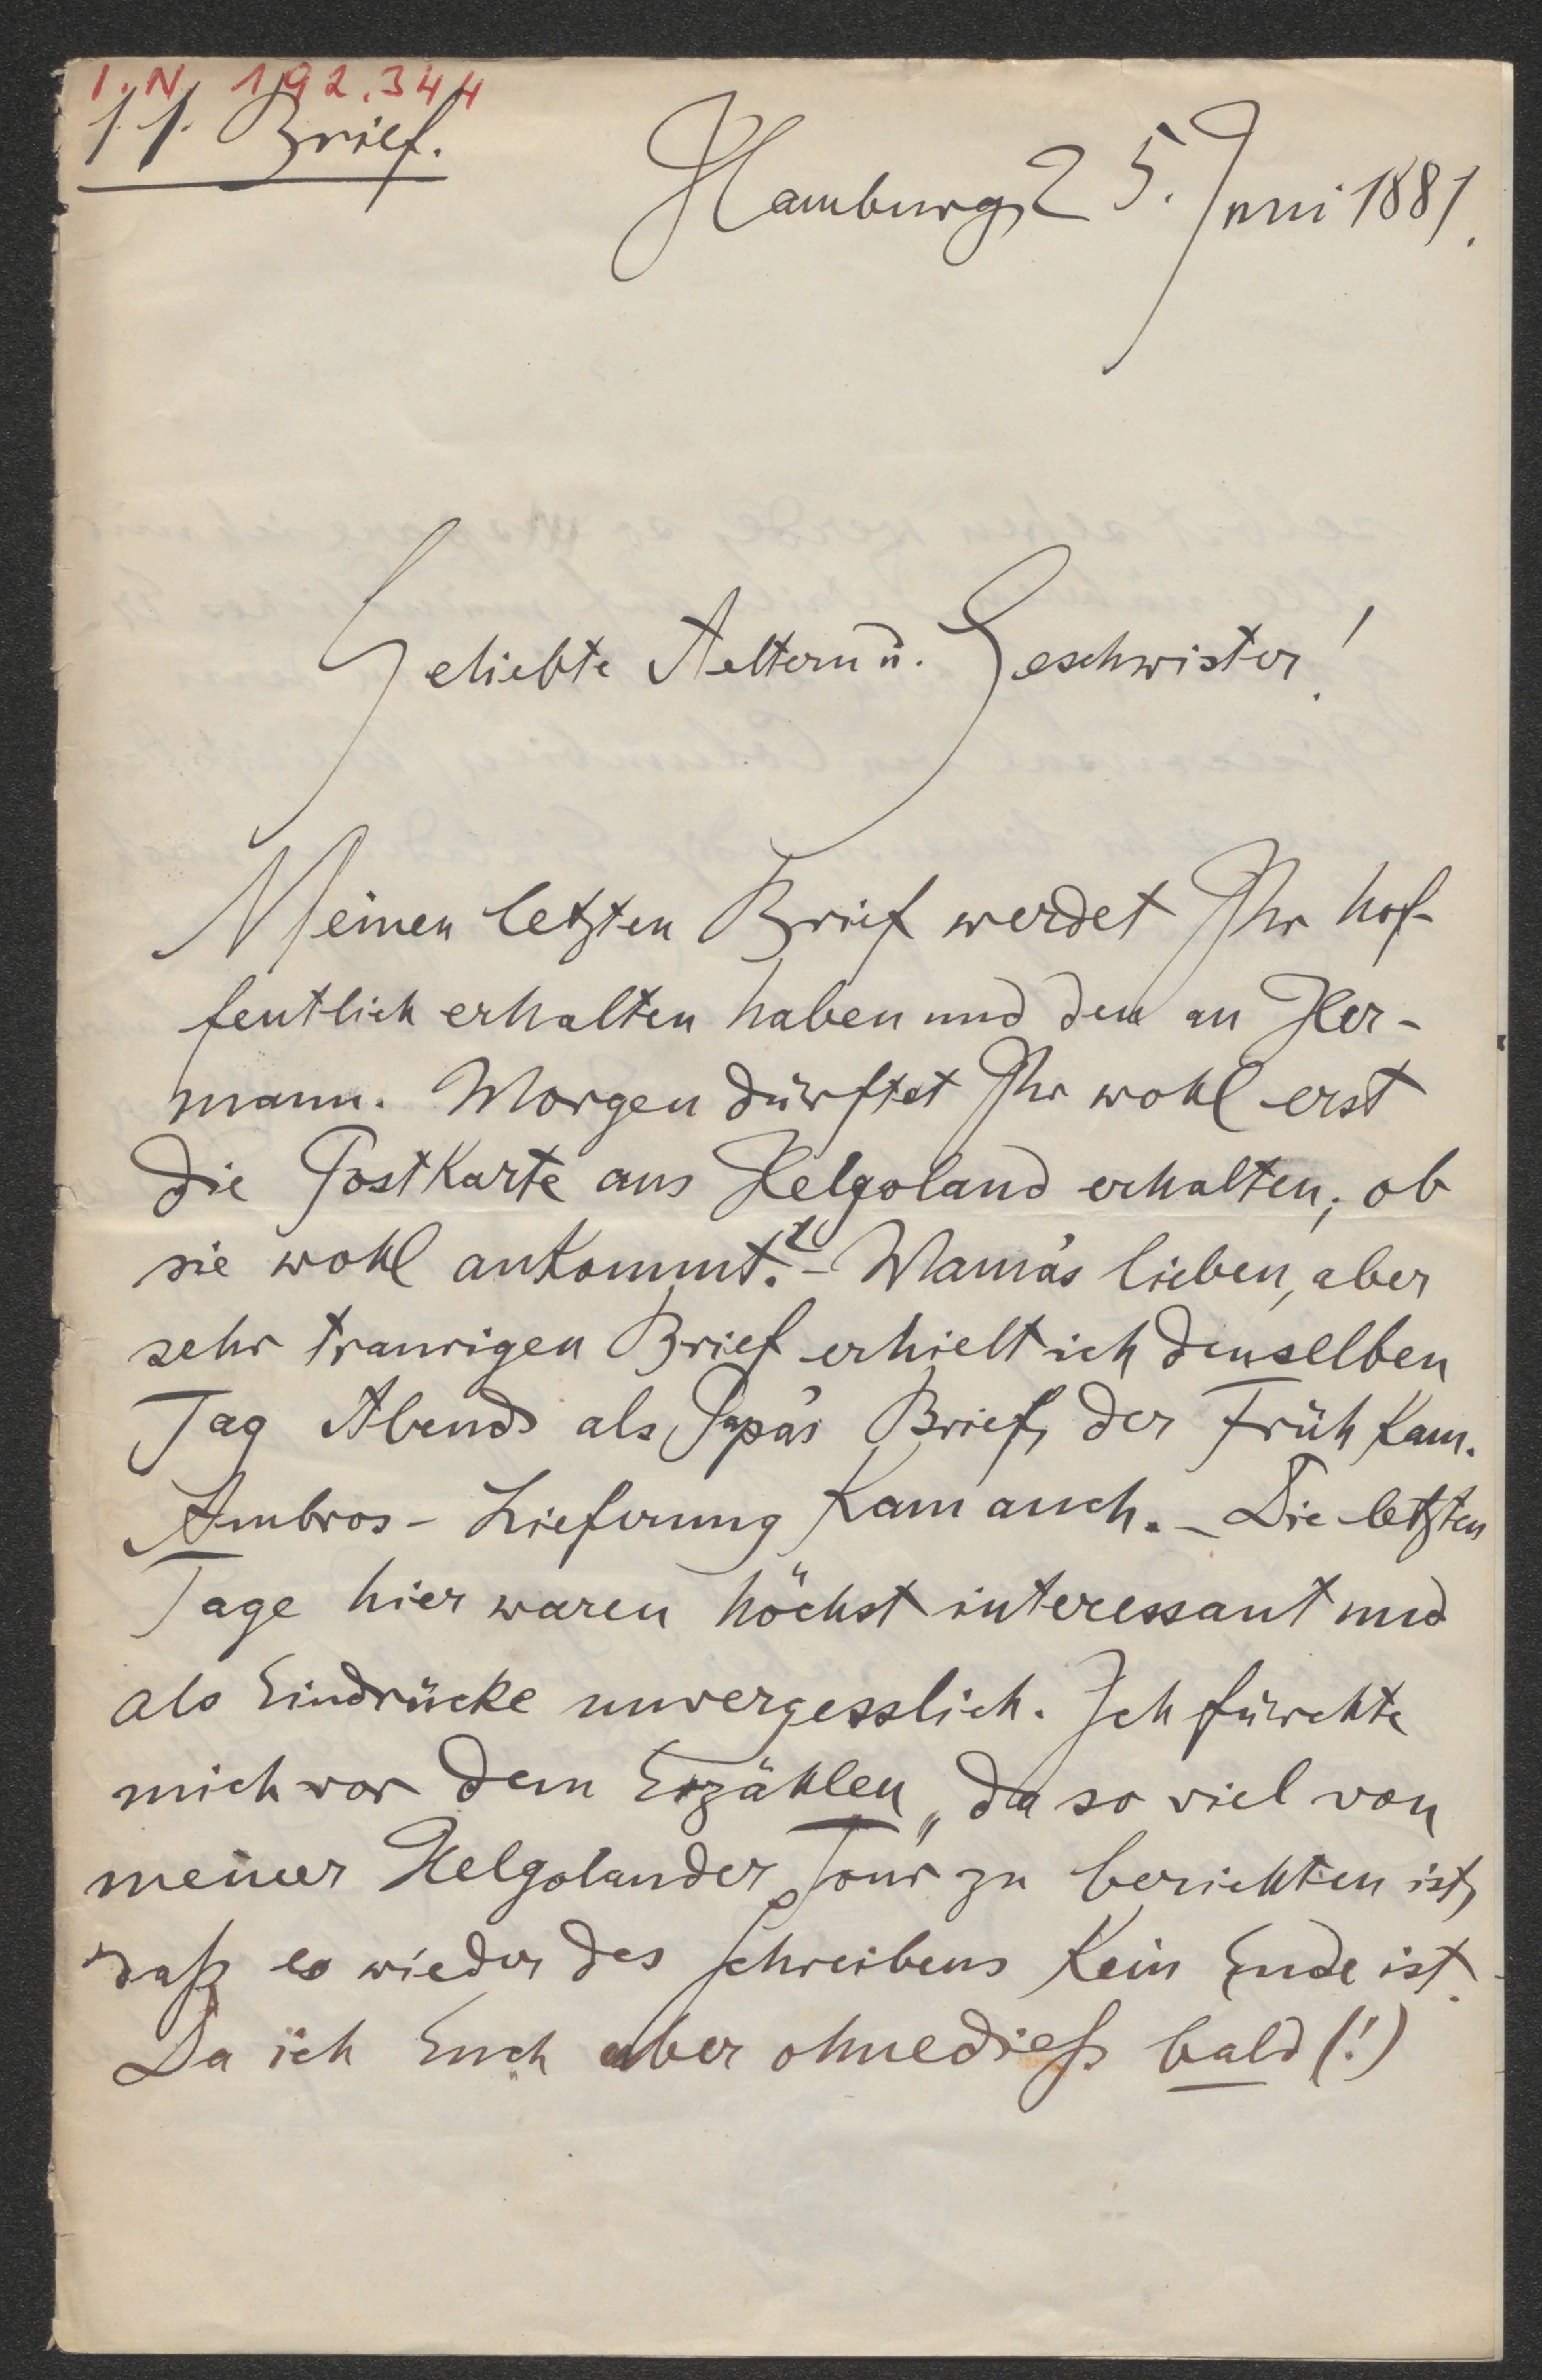 I.N. 192.344
11. Brief.
Hamburg, 25. Juni 1881.
Geliebte Aeltern u. Geschwister!
Meinen letzten Brief werdet Ihr hof-
fentlich erhalten haben und den an Her-
mann. Morgen dürftet Ihr wohl erst
die Postkarte aus Helgoland erhalten; ob
sie wohl ankommt? – Mama's lieben, aber
sehr traurigen Brief erhielt ich denselben
Tag Abends als Papa's Brief, der Früh kam.
Ambros-Lieferung kam auch. – Die letzten
Tage hier waren höchst interessant und
als Eindrücke unvergesslich. Ich fürchte
mich vor dem Erzählen, da so viel von
meiner Helgolander Tour zu berichten ist,
daß es wieder des Schreibens kein Ende ist.
Da ich Euch aber ohnedieß bald (!)